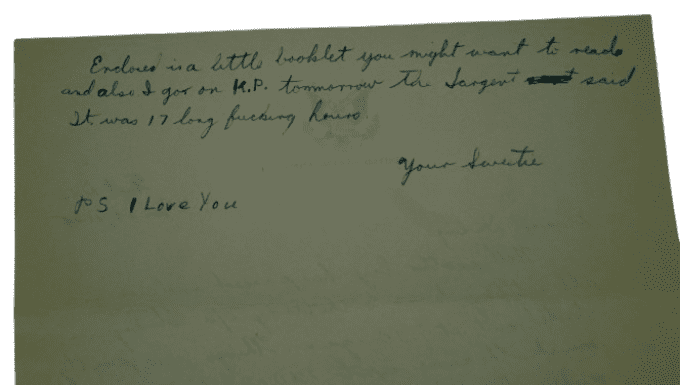 Enclosed is a little booklet you might want to reade
and also I gor on K.P. tommorrow the Sargent said
It was 17 long fucking hours.
Your Sweetie
PS I Love You